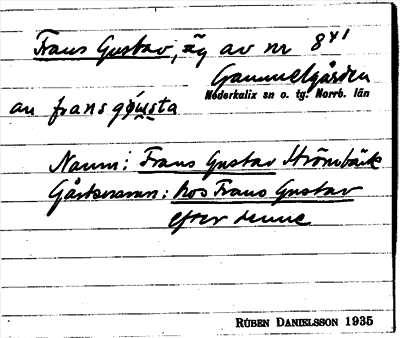 Frans Gustav, äg av nr 8⁴¹
Gammelgården
Nederkalix sn o. tg. Norrb. län
an frans gøusta
Namn: Frans Gustav Strömbäck
Gårdsnamn: hos Frans Gustav
efter denne
RUBEN DANIELSSON 1935